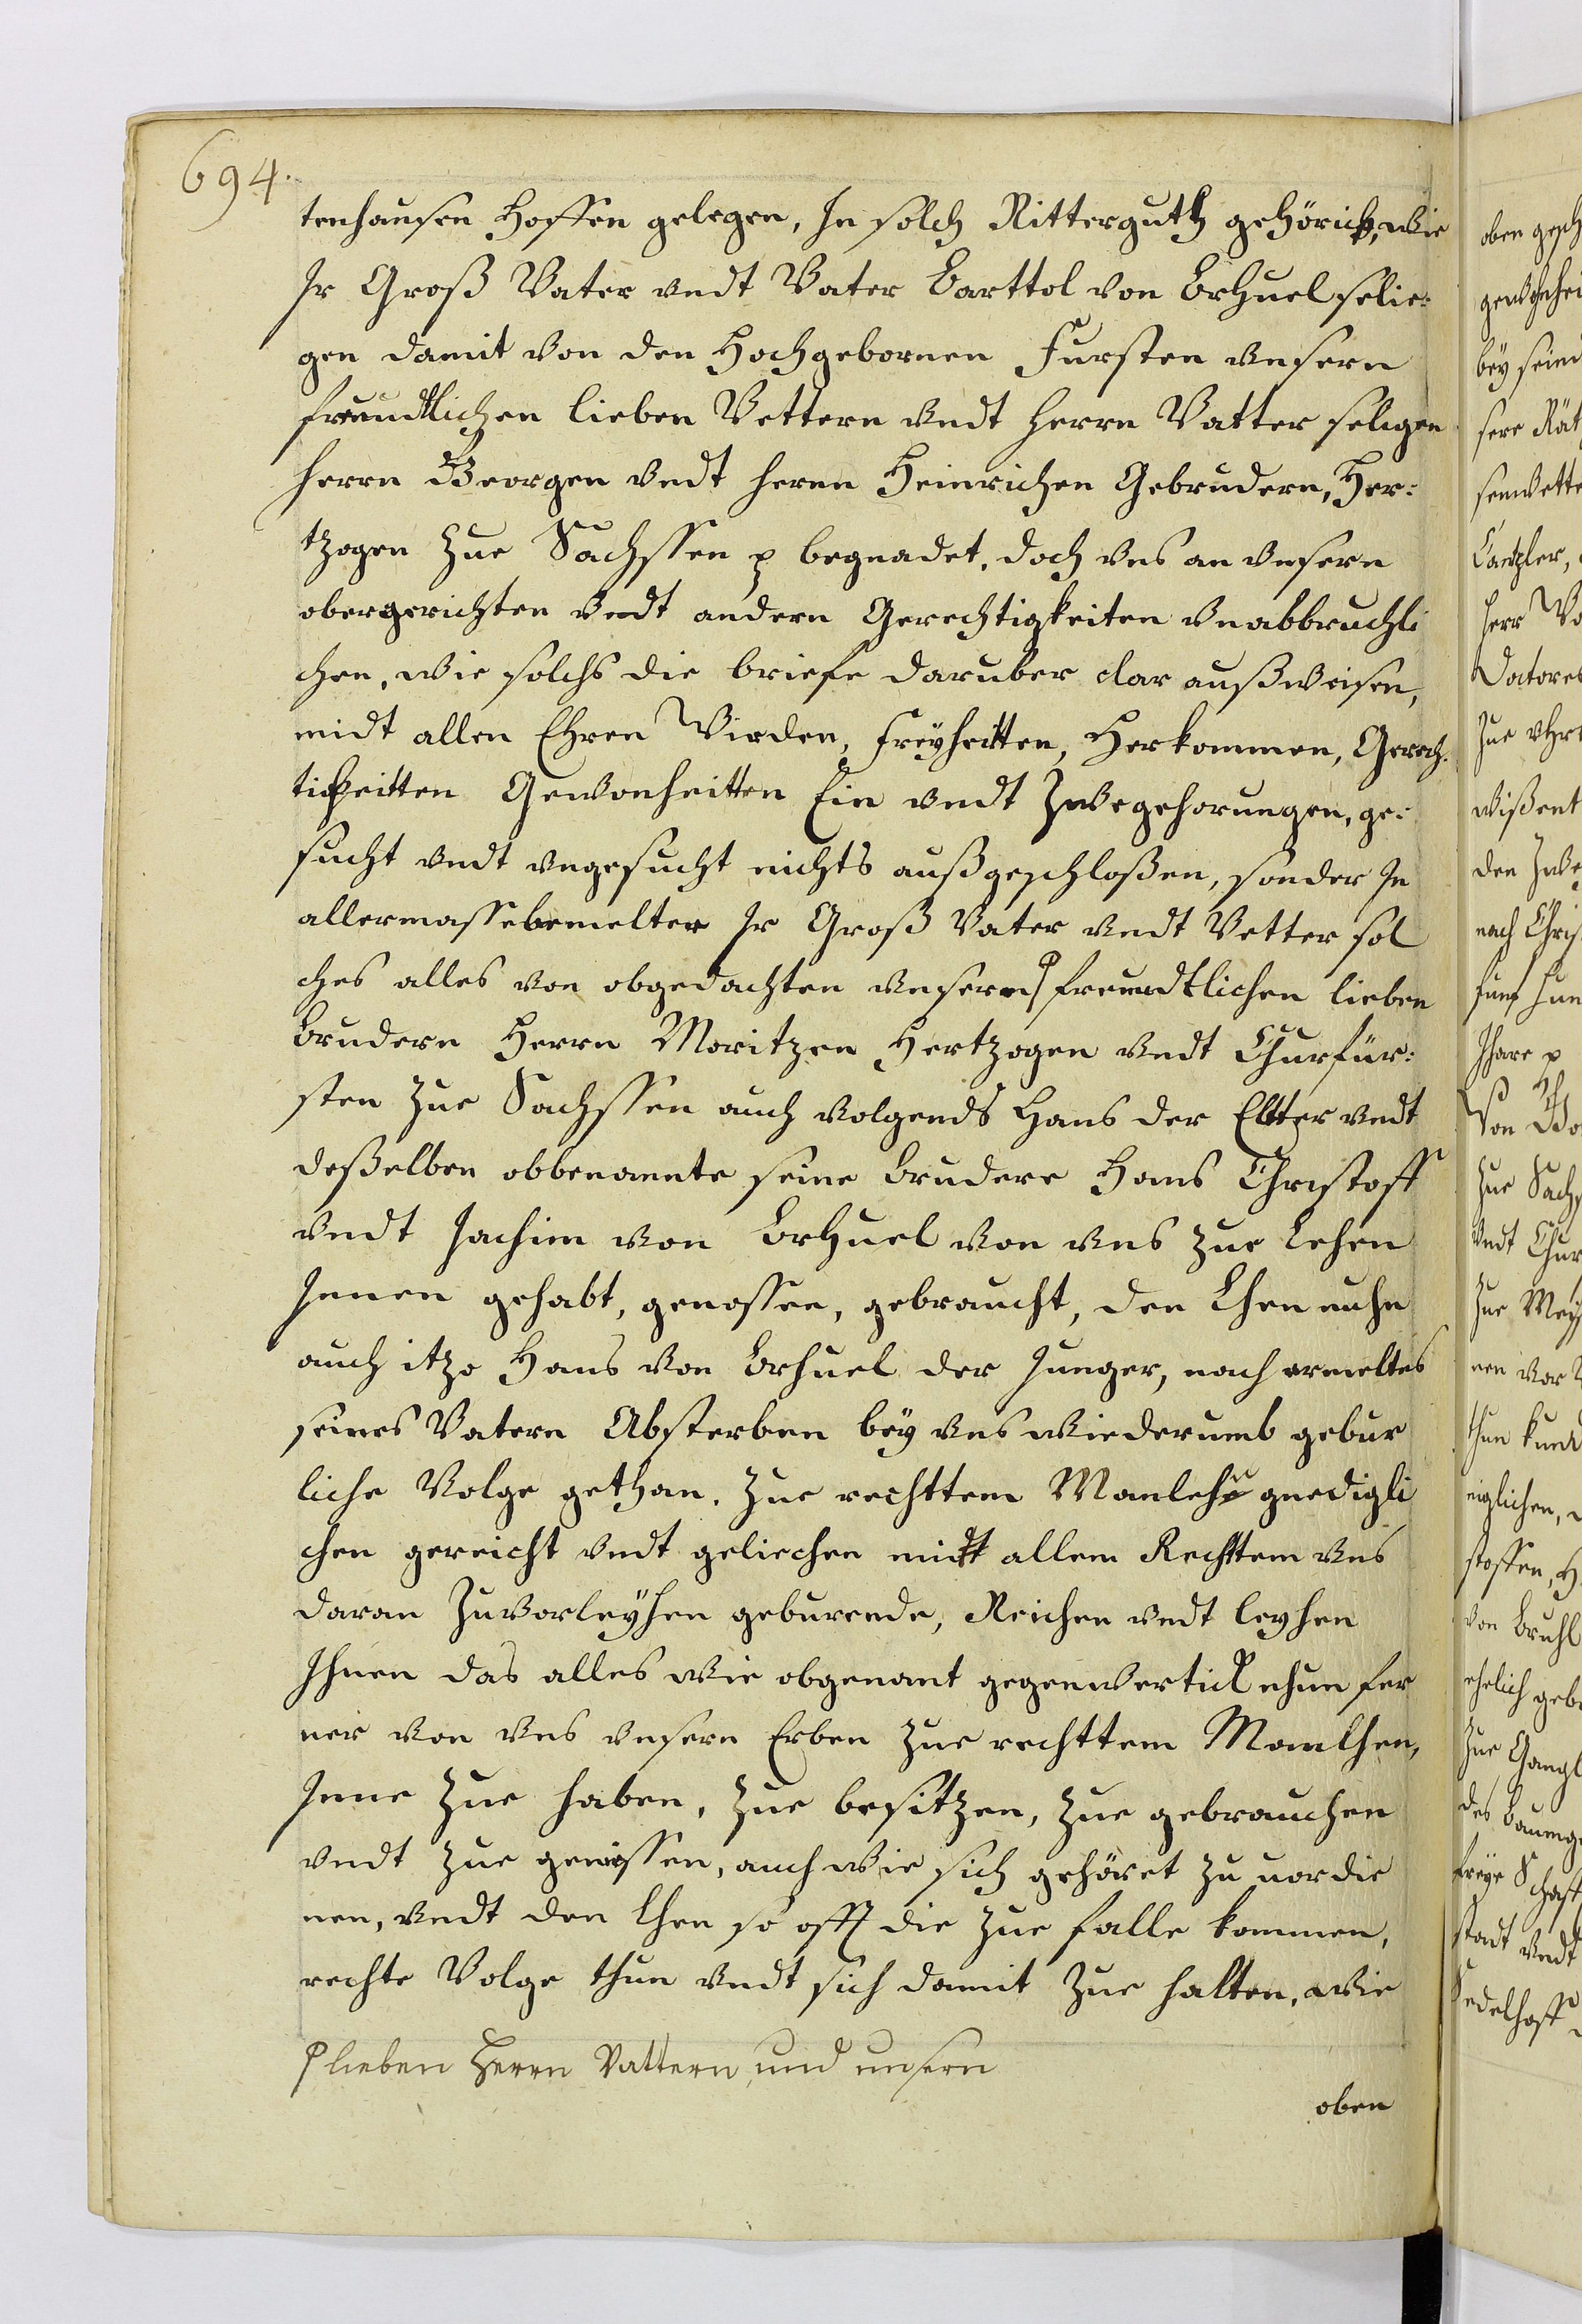 694.
tenhausen Hoffen gelegen, In solch Ritterguth gehörich, wie
Ir Groß Vater vndt Vater Barttol von Brhuel selie¬
gen damit von den Hochgebornen Fursten vnsern
freundtlichen lieben Vettern vndt Herrn Vatter seligen
Herrn Georgen vndt Herrn Heinrichen Gebrudern, Her¬
tzogen zue Sachssen p begnadet, doch vns an vnsern
obergerichten vndt andern Gerechtigkeiten vnabbruchli
chen, wie solchs die briefe daruber clar außweisen,
midt allen Ehren Virden, Freyheitten, Herkommen, Gerech¬
tickeitten Gewonheitten Ein vndt Zwegehorungen, ge¬
sucht vndt vngesucht nichts außgeschloßen, sonder In
allermasse bemelter Ir Groß Vater vndt Vetter sol
ches alles von obgedachten vnsern freundtlichen lieben
Brudern Herrn Moritzen Hertzogen vndt Churfür¬
sten zue Sachssen auch volgends Hans der Eltter vndt
deßelben obbenannte seine Brudere Hans Christoff
vndt Jachim von Brhuel von vns zue Lehen
Innen gehabt, genossen, gebraucht, den Lhen nuhn
auch itzo Hans von Brhuel der Junger, nach ermeltes
seines Vatern Absterben bey vns wiederumb gebur
liche Volge gethan. Zue rechttem Manlehn gnedigli
chen gereicht vndt geliechen midt allem Rechttem vns
daran Zuvorleyhen geburende, Reichen vndt leyhen
Ihnen das alles wie obgenant gegenwertick nhun fer
ner von vns vnsern Erben zue rechttem Manlhen,
Inne zue haben, zue besitzen, zue gebrauchen
vndt zue geniessen, auch wie sich gehöret zu uordie
nen, vndt den lhen so offt die zue falle kommen,
rechte Volge thun vndt sich damit zue halten, wie
lieben Herrn Vattern und unsern
oben
oben gesch
gewohnhei
bey seine
sere Rät
senwette
Cantzler,
Herr Vo
Datores
zue vhrt
wißent
den zwe
nach Chris
fünf hun
Jhare p
Von Go
zue Sachs
vndt Chur
zue Mey
nen vor
thun kund
niglichen,
stoffen, H
von Bruhl
ehelich geb
zue Gangl
des Baumg
freye Schaff
stadt vndt
Sedelhoff